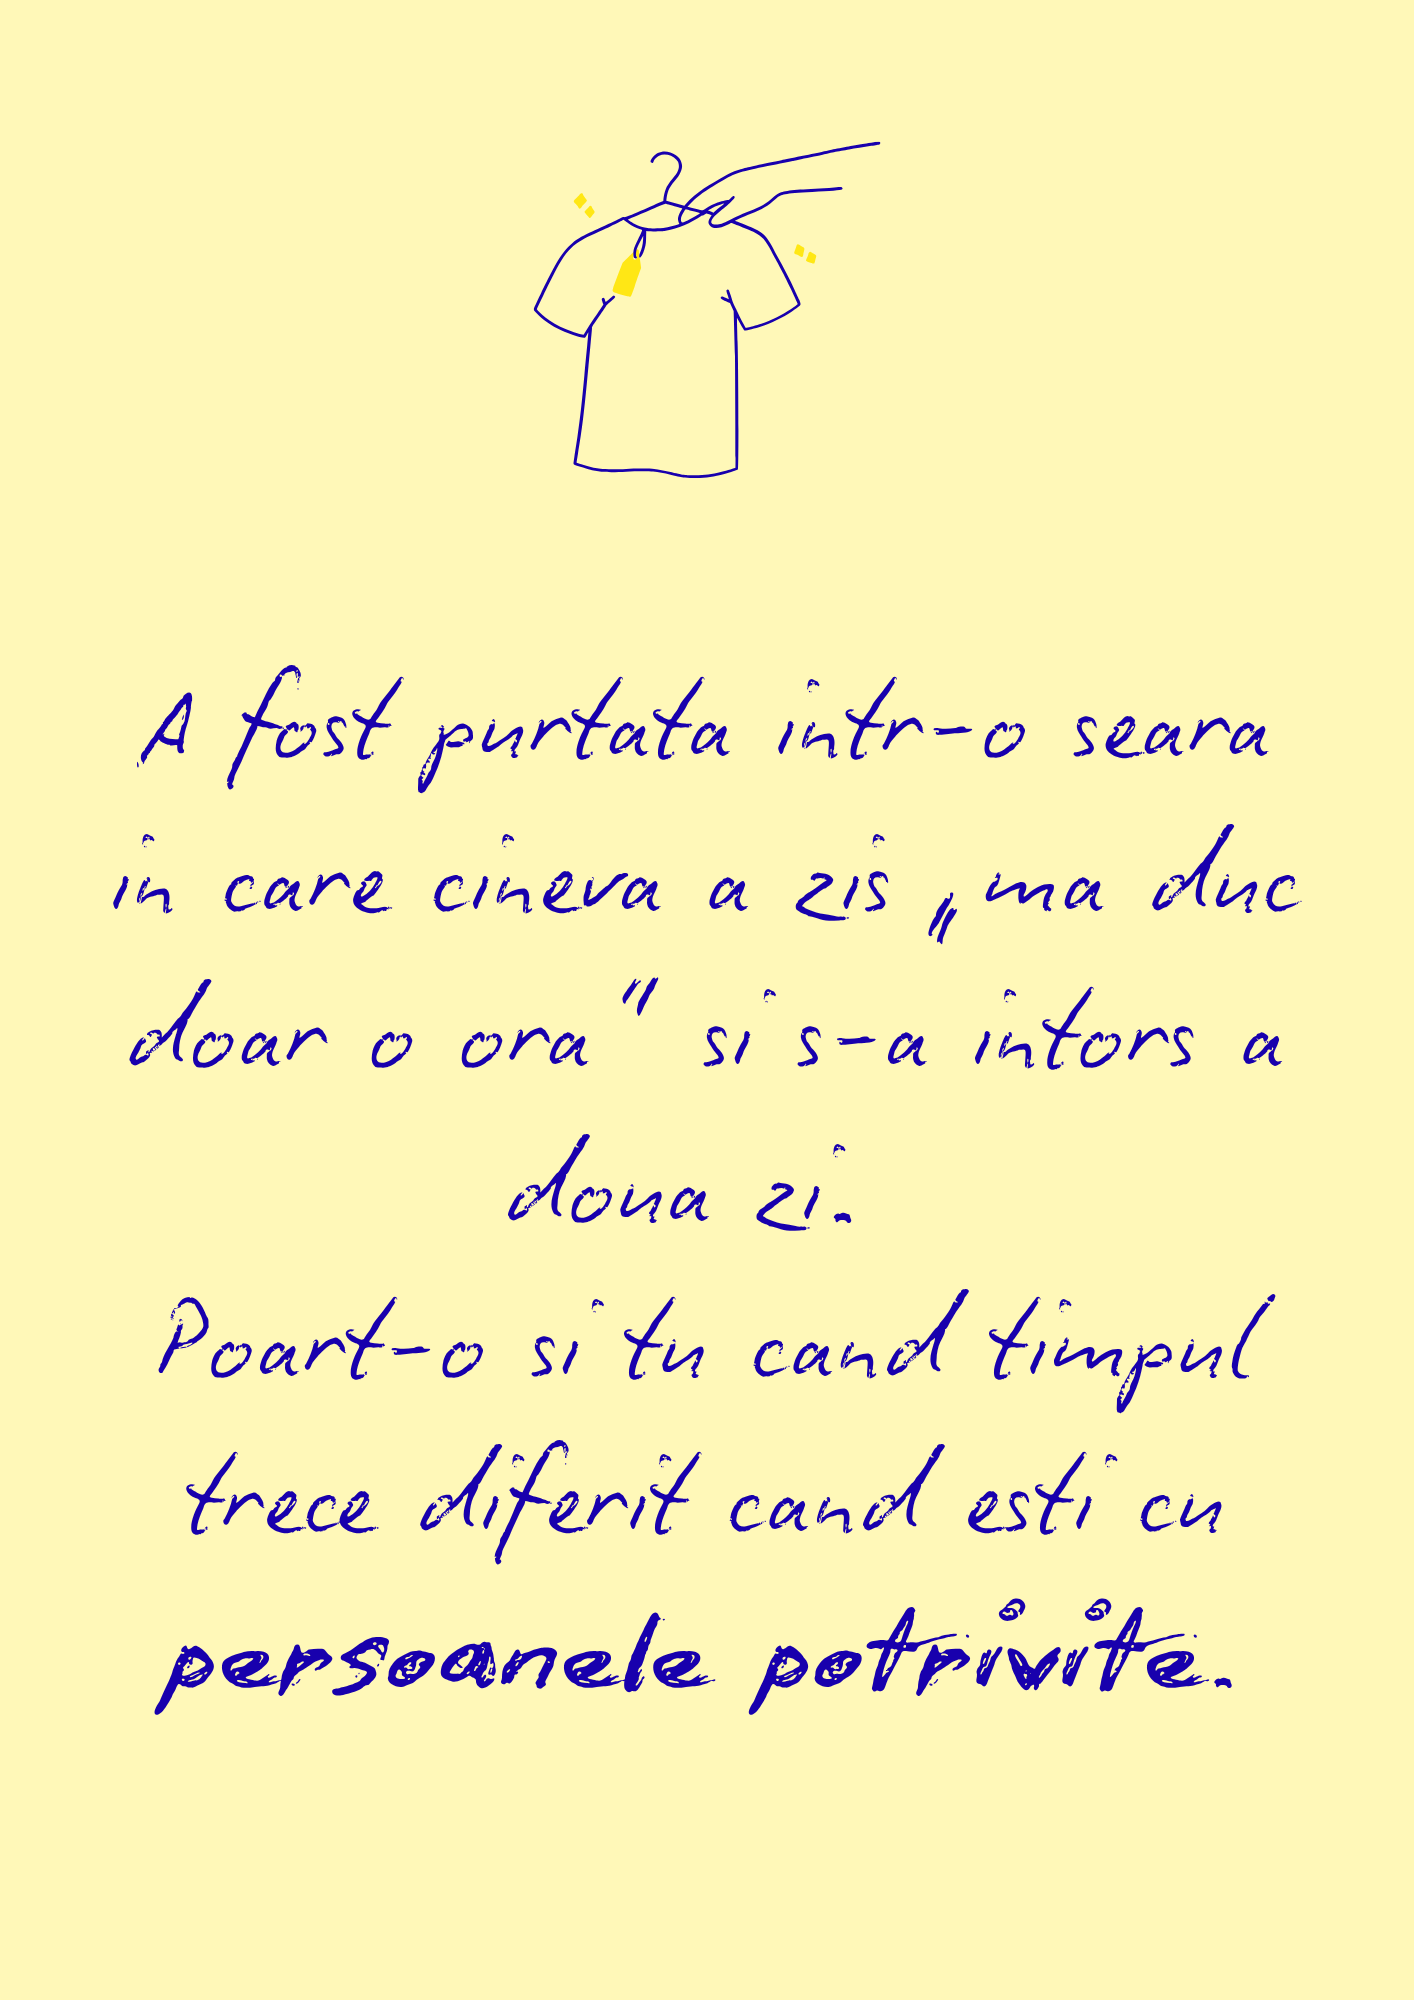 A fost purtata intr-o seara
in care cineva a zis „ma duc
doar o ora” si s-a intors a
doua zi.
Poart-o si tu cand timpul
trece diferit cand esti cu
persoanele potrivite.